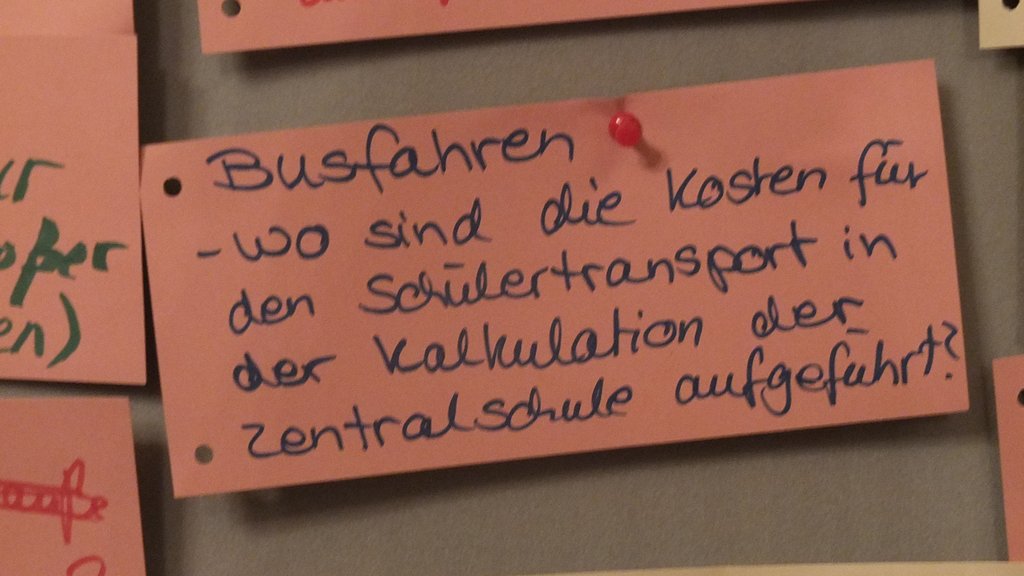 Busfahren
- wo sind die Kosten für
den Schülertransport in
der Kalkulation der
Zentralschule aufgeführt?
en)